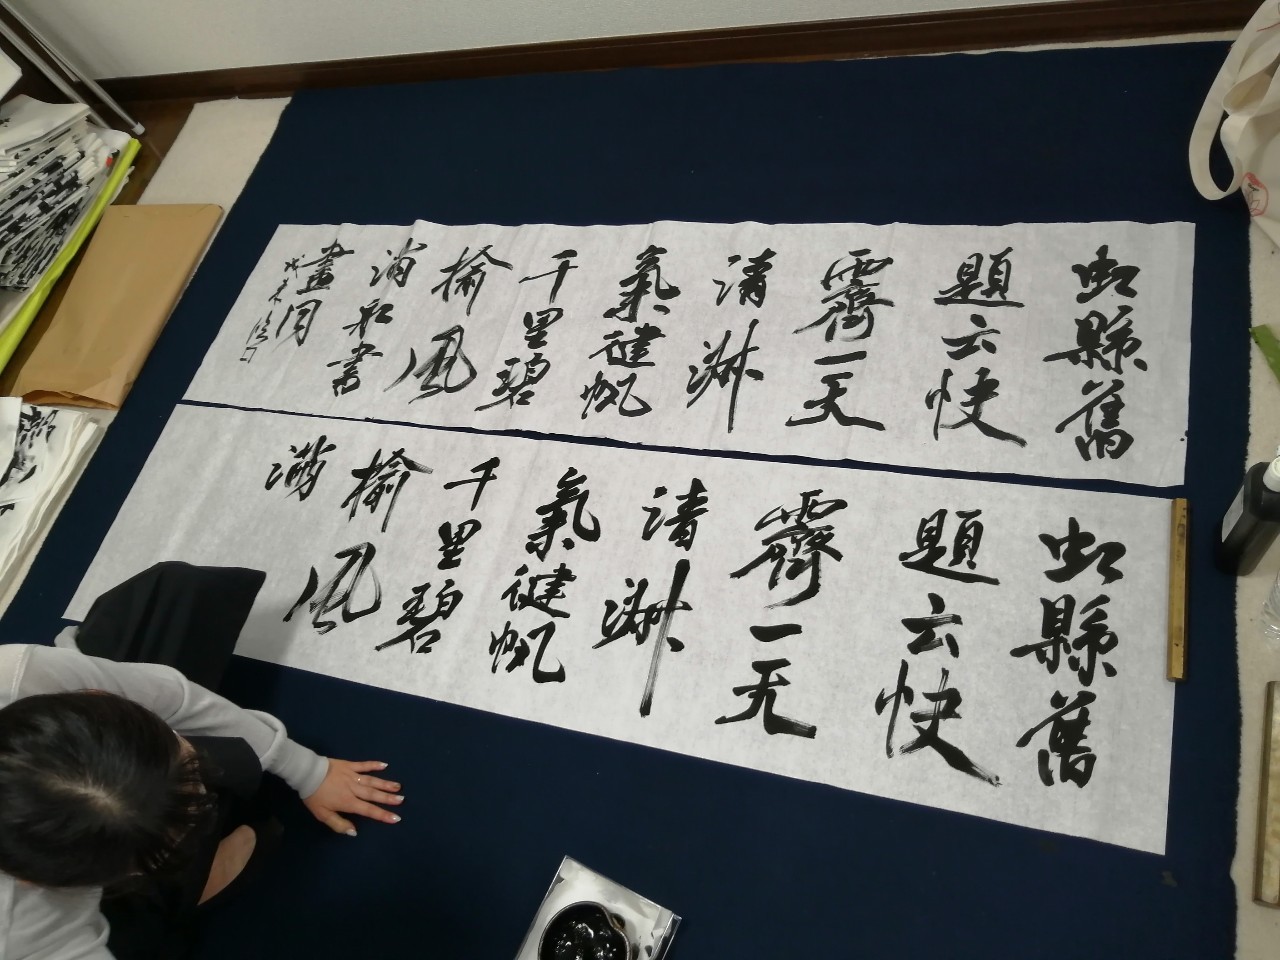 虹縣舊
題云快
霽一天
清淑
氣健帆
千里碧
榆風
滿船書
畫同
虹縣舊
題云快
霽一天
清淑
氣健帆
千里碧
榆風
滿